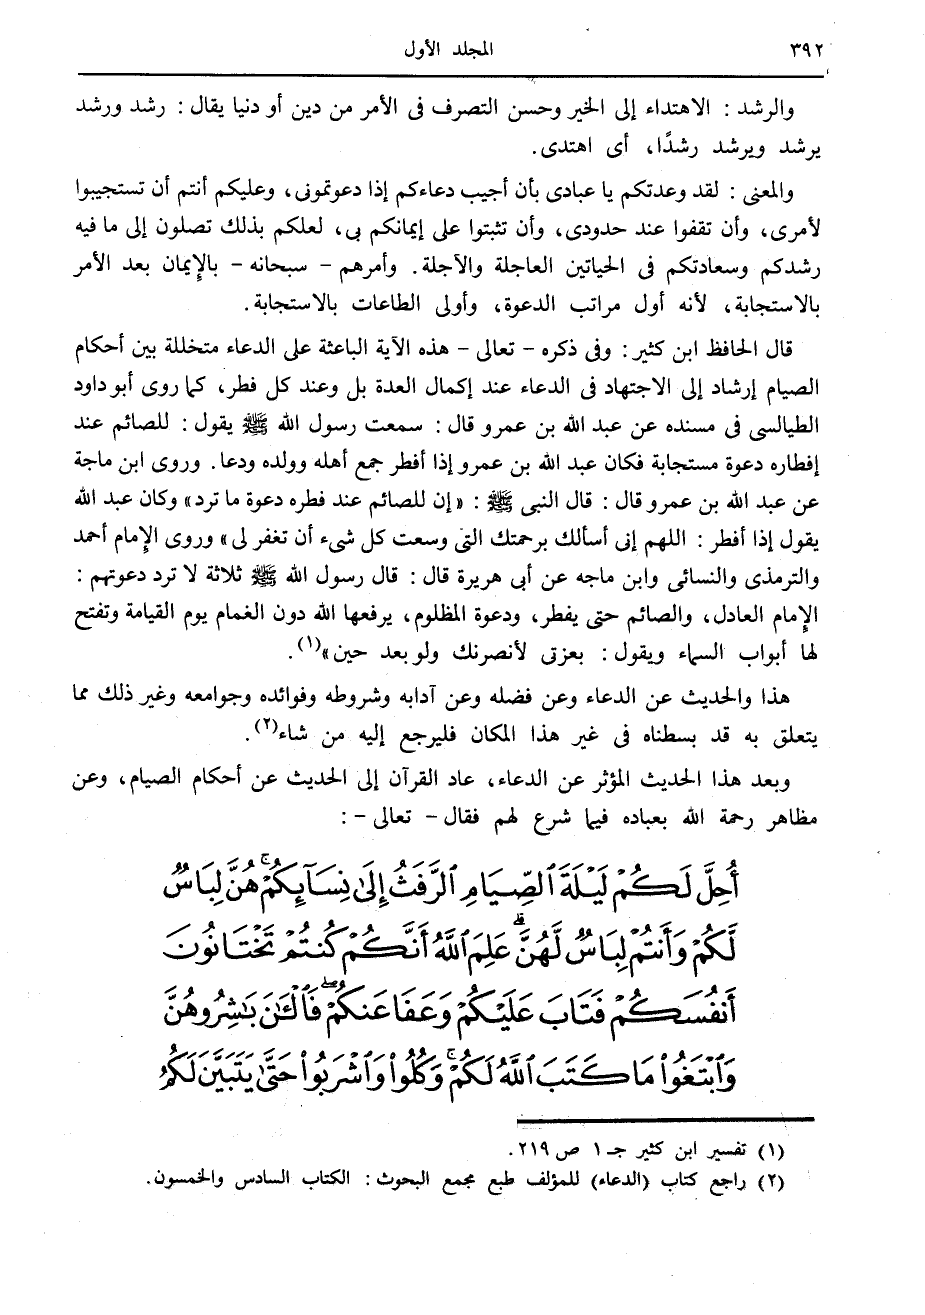 ٣٩٢ المجلد الأول
والرشد : الاهتداء إلى الخير وحسن التصرف فى الأمر من دين أو دنيا يقال : رشد ورشد
يرشد ويرشد رشدًا، أى اهتدى.
والمعنى : لقد وعدتكم يا عبادى بأن أجيب دعاءكم إذا دعوتمونى، وعليكم أنتم أن تستجيبوا
لأمرى، وأن تقفوا عند حدودى، وأن تثبتوا على إيمانكم بى، لعلكم بذلك تصلون إلى ما فيه
رشدكم وسعادتكم فى الحياتين العاجلة والآجلة. وأمرهم - سبحانه - بالإيمان بعد الأمر
بالاستجابة، لأنه أول مراتب الدعوة، وأولى الطاعات بالاستجابة.
قال الحافظ ابن كثير : وفى ذكره - تعالى - هذه الآية الباعثة على الدعاء متخللة بين أحكام
الصيام إرشاد إلى الاجتهاد فى الدعاء عند إكمال العدة بل وعند كل فطر، كما روى أبو داود
الطيالسى فى مسنده عن عبد الله بن عمرو قال : سمعت رسول الله ﷺ يقول : للصائم عند
إفطاره دعوة مستجابة فكان عبد الله بن عمرو إذا أفطر جمع أهله وولده ودعا. وروى ابن ماجة
عن عبد الله بن عمرو قال : قال النبى ﷺ : «إن للصائم عند فطره دعوة ما ترد» وكان عبد الله
يقول إذا أفطر : اللهم إنى أسألك برحمتك التى وسعت كل شىء أن تغفر لى» وروى الإمام أحمد
والترمذى والنسائى وابن ماجه عن أبى هريرة قال : قال رسول الله ﷺ ثلاثة لا ترد دعوتهم :
الإمام العادل، والصائم حتى يفطر، ودعوة المظلوم، يرفعها الله دون الغمام يوم القيامة وتفتح
لها أبواب السماء ويقول : بعزتى لأنصرنك ولو بعد حين»(١).
هذا والحديث عن الدعاء وعن فضله وعن آدابه وشروطه وفوائده وجوامعه وغير ذلك مما
يتعلق به قد بسطناه فى غير هذا المكان فليرجع إليه من شاء(٢).
وبعد هذا الحديث المؤثر عن الدعاء، عاد القرآن إلى الحديث عن أحكام الصيام، وعن
مظاهر رحمة الله بعباده فيما شرع لهم فقال - تعالى - :
أُحِلَّ لَكُمْ لَيْلَةَ ٱلصِّيَامِ ٱلرَّفَثُ إِلَىٰ نِسَآئِكُمْ ۚ هُنَّ لِبَاسٌ
لَّكُمْ وَأَنتُمْ لِبَاسٌ لَّهُنَّ ۗ عَلِمَ ٱللَّهُ أَنَّكُمْ كُنتُمْ تَخْتَانُونَ
أَنفُسَكُمْ فَتَابَ عَلَيْكُمْ وَعَفَا عَنكُمْ ۖ فَٱلْـَٰٔنَ بَـٰشِرُوهُنَّ
وَٱبْتَغُوا۟ مَا كَتَبَ ٱللَّهُ لَكُمْ ۚ وَكُلُوا۟ وَٱشْرَبُوا۟ حَتَّىٰ يَتَبَيَّنَ لَكُمُ
(١) تفسير ابن كثير جـ ١ ص ٢١٩.
(٢) راجع كتاب (الدعاء) للمؤلف طبع مجمع البحوث : الكتاب السادس والخمسون.